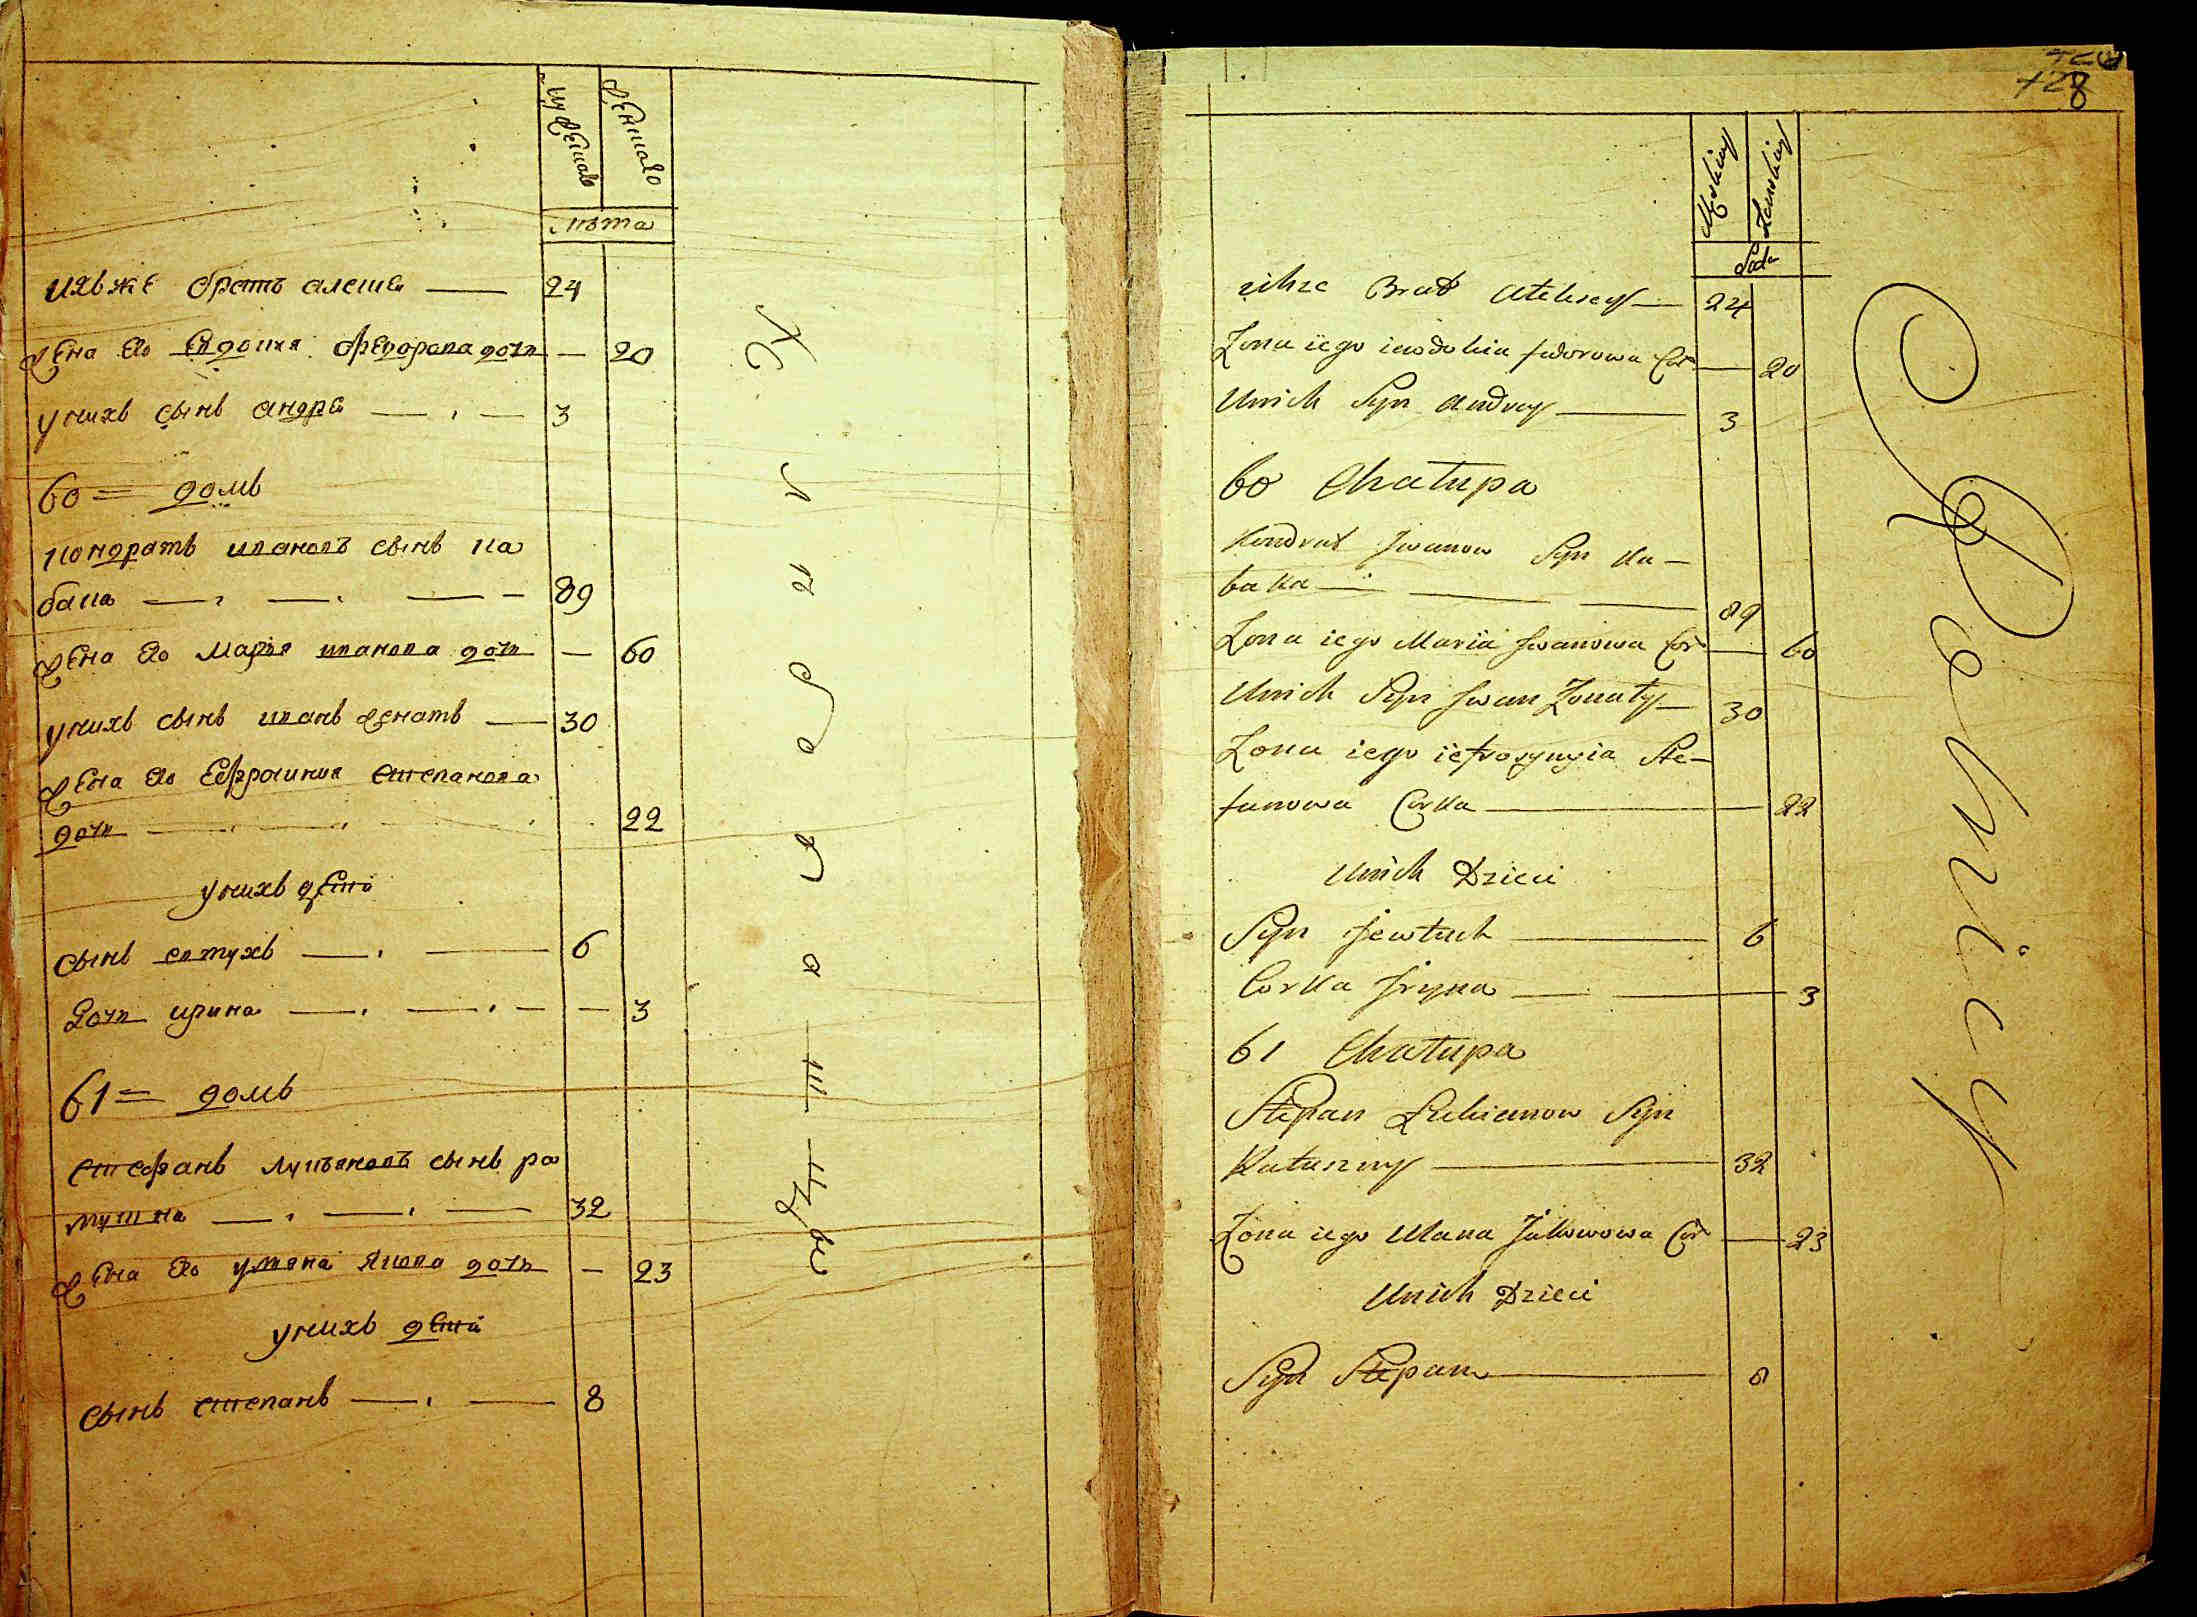 мужеска
женска
лѣта
ихъ же братъ алеѯей — 24
жена его евдокия федорова дочь — 20
у нихъ сынъ андрей — 3
60 = домъ
кондратъ ивановъ сынъ ка
бака — 89
жена его Марья иванова дочь — 60
у нихъ сынъ иванъ женатъ — 30
жена его Ефросиния степанова
дочь — 22
у нихъ дети
сынъ евтухъ — 6
дочь ирина — 3
61 = домъ
стефанъ лукъяновъ сынъ ра
тушна — 32
жена его уляна якова дочь — 23
у нихъ дети
сынъ степанъ — 8
728
Męskiey
Żenskiey
Lat
ichze Brat Alexey — 24
Żona iego iewdokia fedorowa Cor — 20
Unich Syn Andrey — 3
60 Chałupa
Kondrat Iwanow Syn Ka-
baka — 89
Żona iego Maria Iwanowa Cor — 60
Unich Syn Iwan Żonaty — 30
Żona iego iefrosynyia Ste-
fanowa Corka — 22
Unich Dzieci
Syn Jewtuch — 6
Corka Iryna — 3
61 Chałupa
Stepan Łukianow Syn
Ratuszny — 32
Żona iego Ulana Jakowowa Cor — 23
Unich Dzieci
Syn Stepan — 8